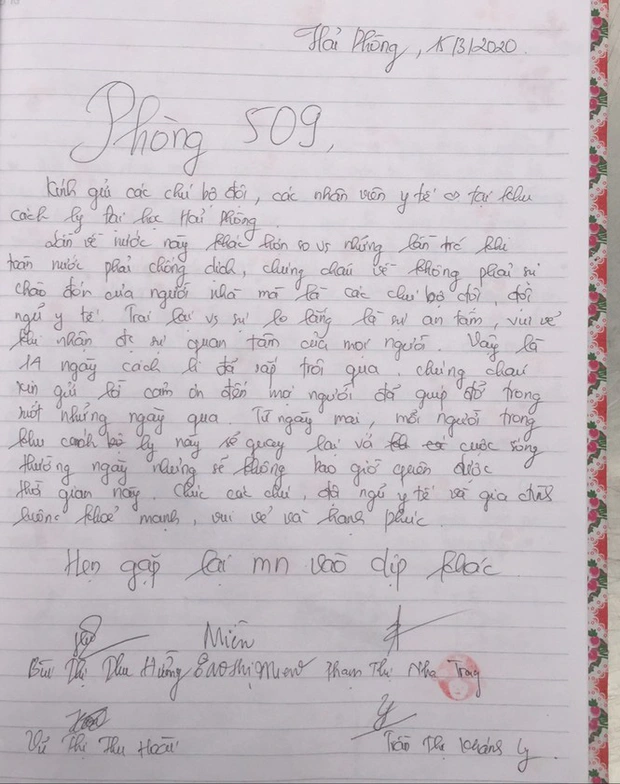 Hải Phòng, 15/3/2020.
Phòng 509,
Kính gửi các chú bộ đội, các nhân viên y tế tại khu
cách ly tại Hải Phòng
Lần về nước này khác hơn so vs những lần trc khi
toàn nước phải chống dịch, chúng cháu về không phải sự
chào đón của người nhà mà là các chú bộ đội, đội
ngũ y tế. Trái lại vs sự lo lắng là sự an tâm, vui vẻ
khi nhận đc sự quan tâm của mọi người. Vậy là
14 ngày cách li đã sắp trôi qua. chúng cháu
xin gửi lời cảm ơn đến mọi người đã giúp đỡ trong
suốt những ngày qua. Từ ngày mai, mỗi người trong
khu cách ly này sẽ quay lại vs cuộc sống
thường ngày nhưng sẽ không bao giờ quên được
thời gian này. Chúc các chú, đội ngũ y tế và gia đình
luôn khoẻ mạnh, vui vẻ và hạnh phúc.
Hẹn gặp lại mn vào dịp khác.
Miên
Bùi Thị Thu Hường Phạm Thị Nha Trang
Vũ Thị Thu Hoài Trần Thị Khánh Ly.